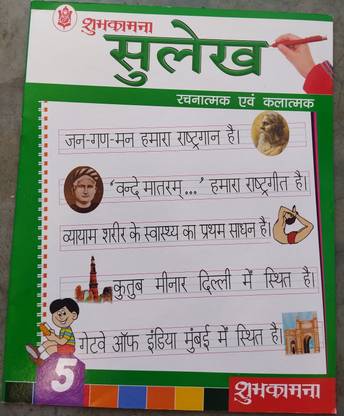 शुभकामना
सुलेख
रचनात्मक एवं कलात्मक
जन-गण-मन हमारा राष्ट्रगान है।
'वन्दे मातरम्...' हमारा राष्ट्रगीत है।
व्यायाम शरीर के स्वास्थ्य का प्रथम साधन है।
कुतुब मीनार दिल्ली में स्थित है।
गेटवे ऑफ इंडिया मुंबई में स्थित है।
5
शुभकामना